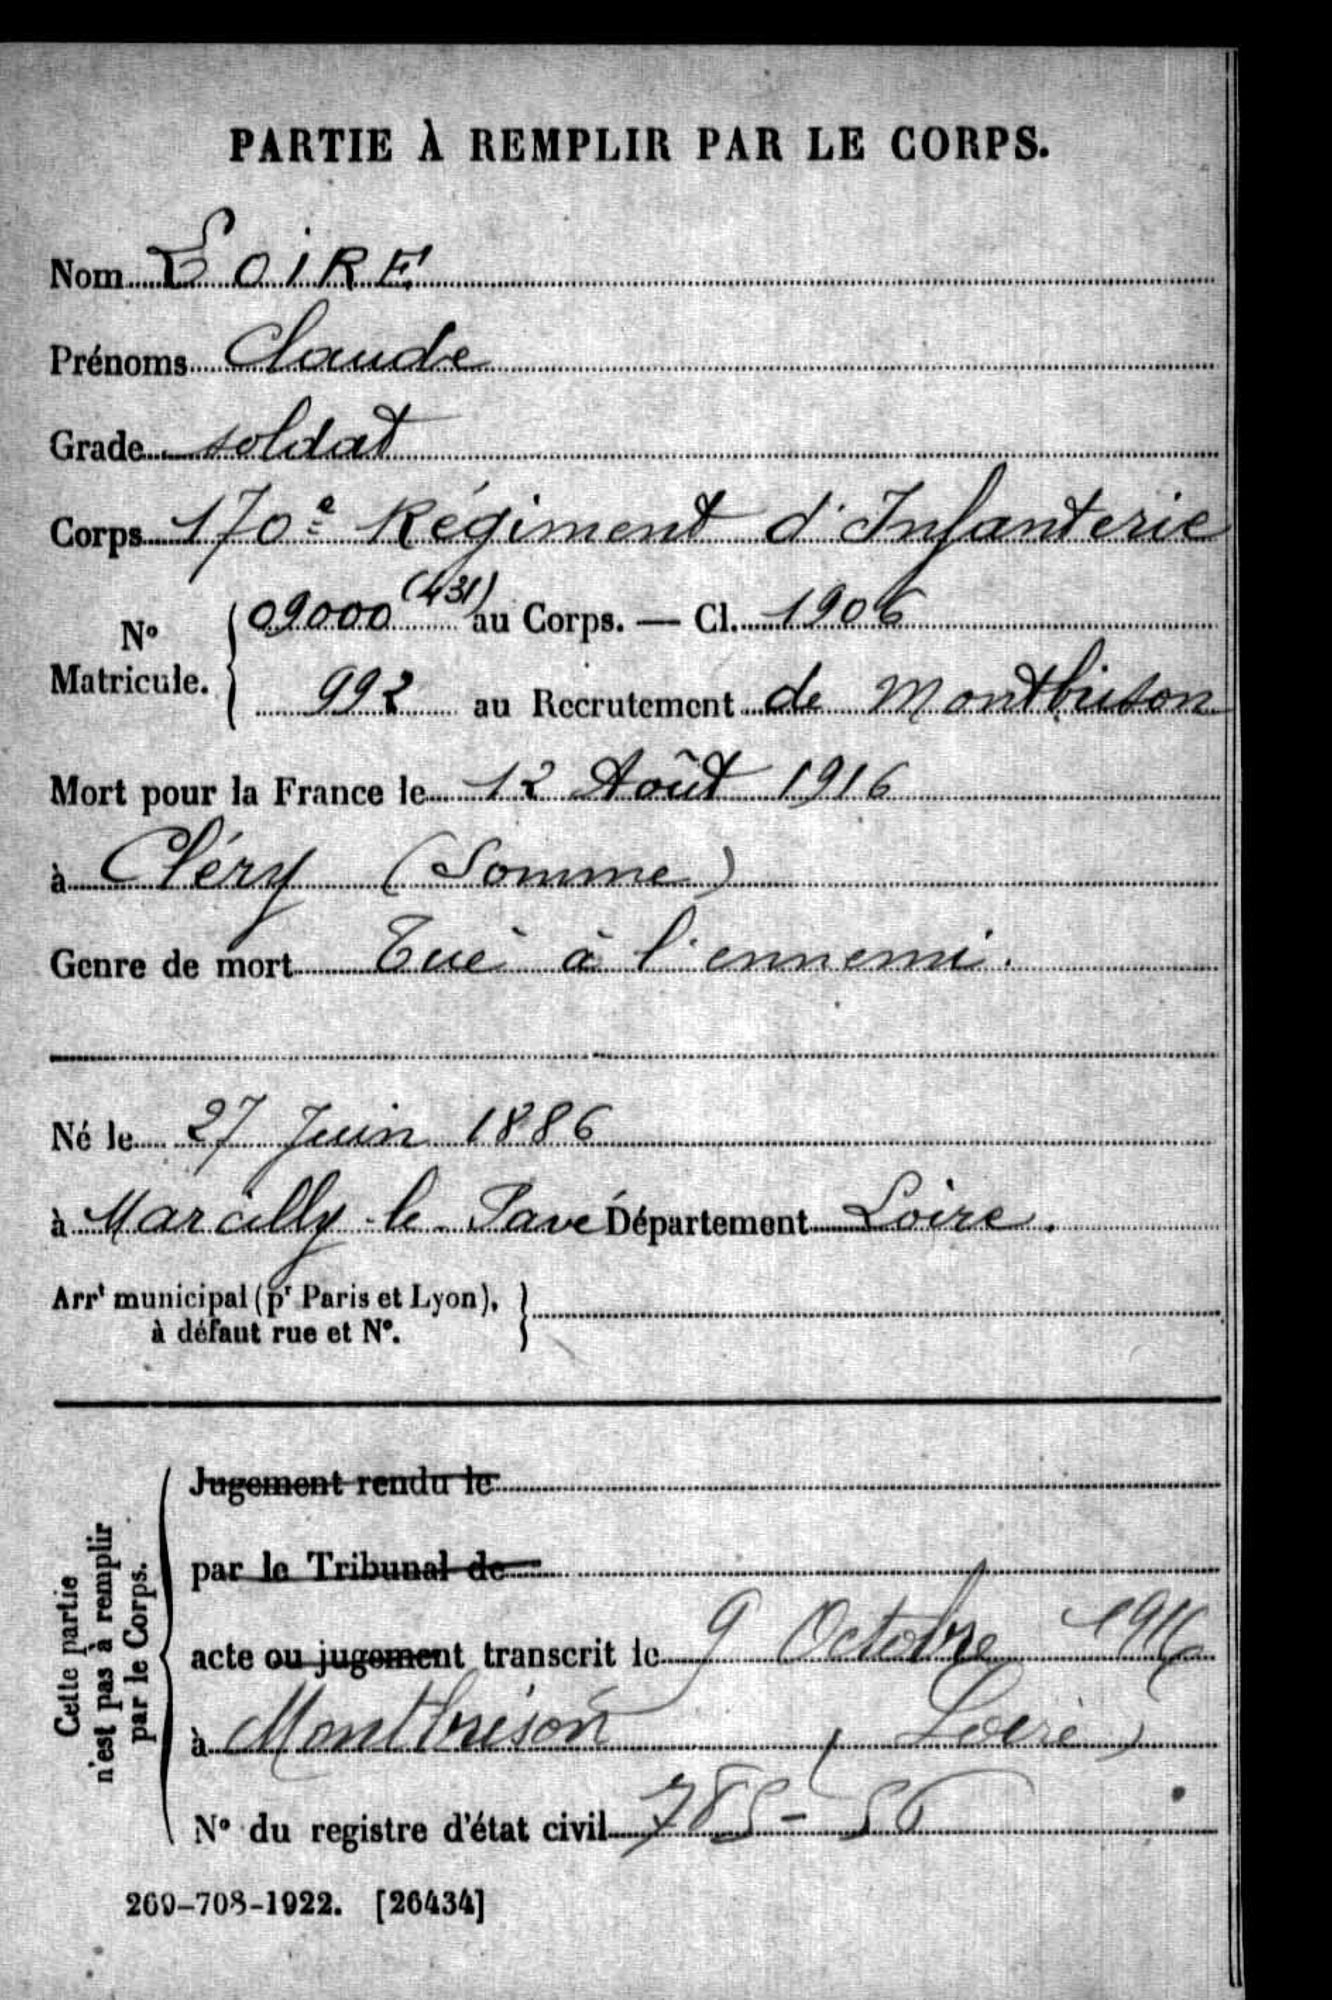 PARTIE À REMPLIR PAR LE CORPS.
Nom LOIRE
Prénoms Claude
Grade soldat
Corps 170e Régiment d'Infanterie
N° Matricule. 09000 (431) au Corps. — Cl. 1906
992 au Recrutement de Montbrison
Mort pour la France le 12 Août 1916
à Cléry (Somme)
Genre de mort Tué à l'ennemi.
Né le 27 Juin 1886
à Marcilly-le-Pavé Département Loire.
Arrt municipal (pr Paris et Lyon), à défaut rue et N°.
Cette partie n'est pas à remplir par le Corps.
Jugement rendu le
par le Tribunal de
acte ou jugement transcrit le 9 Octobre 1916
à Montbrison (Loire)
N° du registre d'état civil 785-56
269-708-1922. [26434]